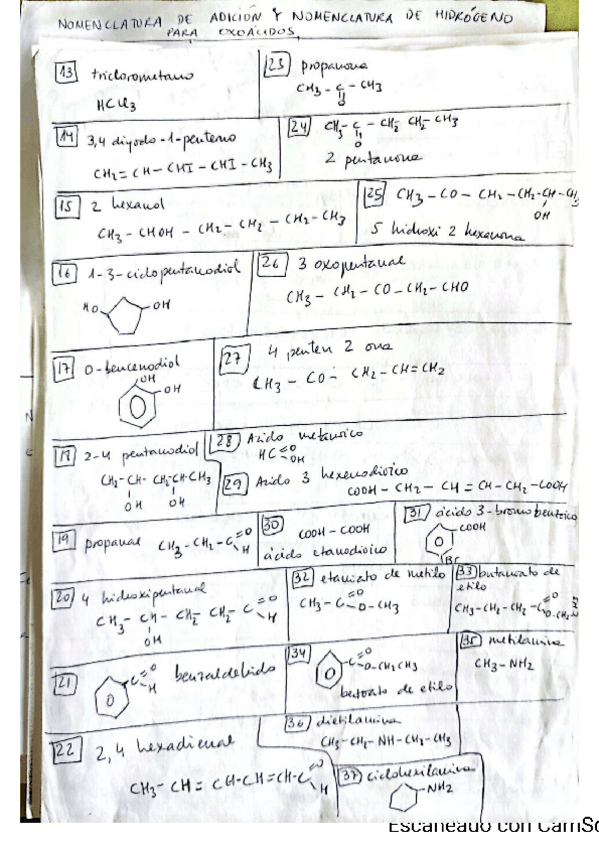 NOMENCLATURA DE ADICIÓN Y NOMENCLATURA DE HIDRÓGENO
PARA OXOÁCIDOS
13 triclorometano
HCCl3
23 propanona
CH3 - C - CH3
O
14 3,4 diyodo-1-penteno
CH2 = CH - CHI - CHI - CH3
24 CH3 - C - CH2 CH2 - CH3
O
2 pentanona
15 2 hexanol
CH3 - CHOH - CH2 - CH2 - CH2 - CH3
25 CH3 - CO - CH2 - CH2 - CH - CH3
OH
5 hidroxi 2 hexanona
16 1-3-ciclopentanodiol
HO OH
26 3 oxopentanal
CH3 - CH2 - CO - CH2 - CHO
17 O-bencenodiol
OH
OH
27 4 penten 2 ona
CH3 - CO - CH2 - CH = CH2
18 2-4 pentanodiol
CH3 - CH - CH2 CH - CH3
OH OH
28 Acido metanoico
HC =O
OH
29 Acido 3 hexenodioico
COOH - CH2 - CH = CH - CH2 - COOH
19 propanal CH3 - CH2 - C =O
H
30 COOH - COOH
ácido etanodioico
31 ácido 3-bromobenzoico
COOH
Br
20 4 hidroxipentanal
CH3 - CH - CH2 CH2 - C =O
H
OH
32 etanoato de metilo
CH3 - C =O
O - CH3
33 butanoato de
etilo
CH3 - CH2 - CH2 - C =O
21 benzaldehido
C =O
H
34
C =O
O - CH2 CH3
benzoato de etilo
35 metilamina
CH3 - NH2
22 2,4 hexadienal
CH3 - CH = CH - CH = CH - C =O
H
36 dietilamina
CH3 - CH2 - NH - CH2 - CH3
37 ciclohexilamina
NH2
Escaneado con CamSc